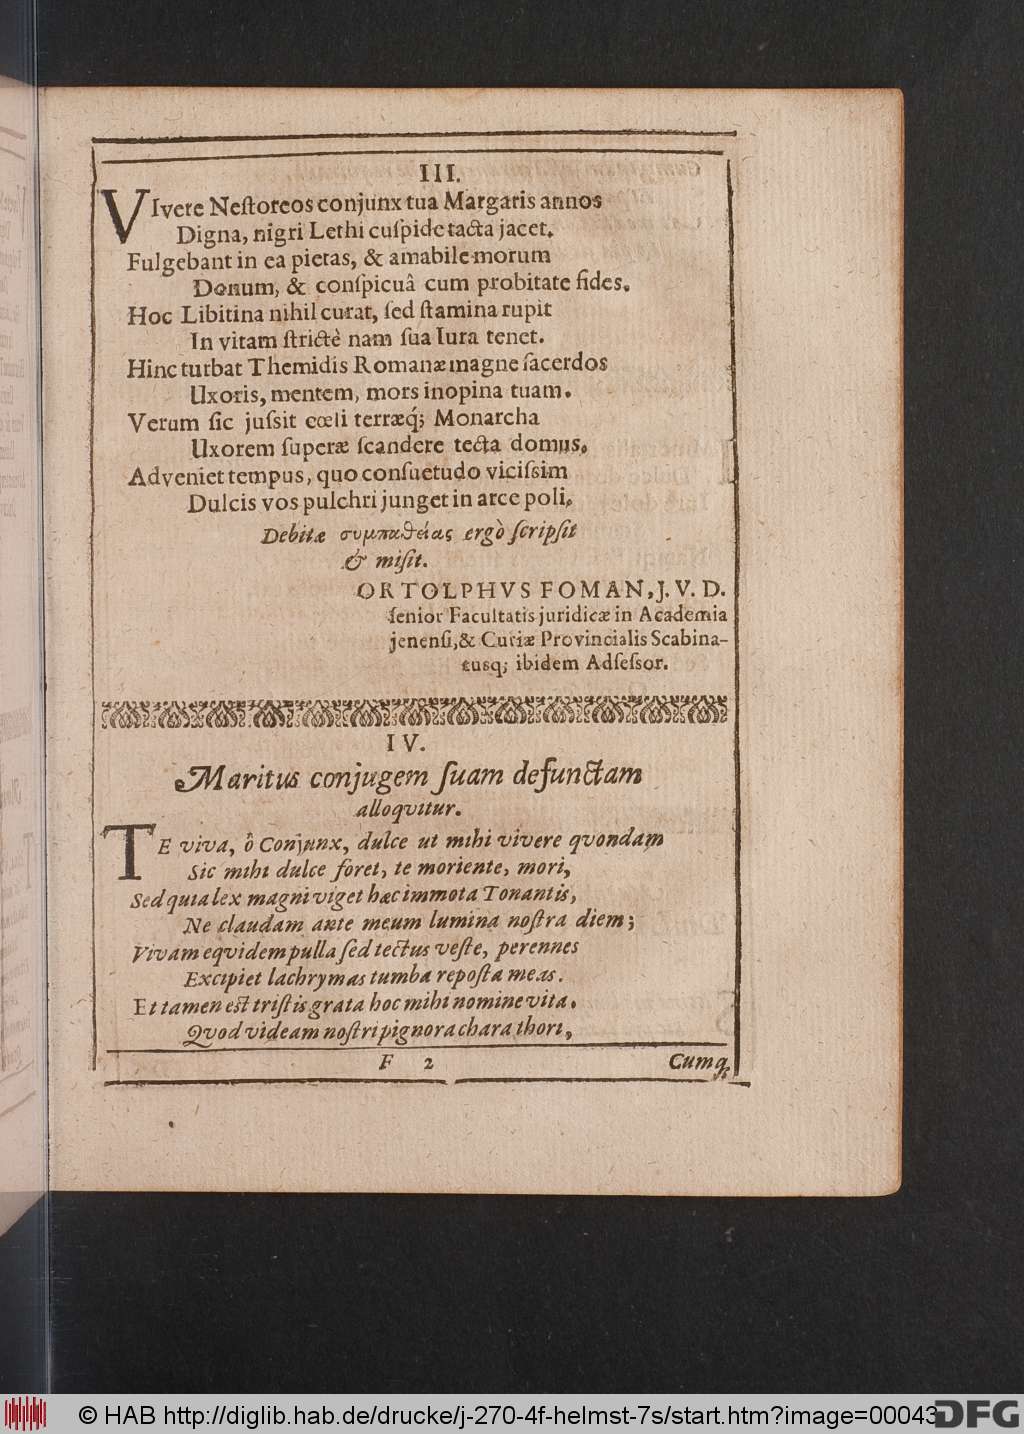 III.
VIvere Neſtoreos conjunx tua Margaris annos
Digna, nigri Lethi cuſpide tacta jacet.
Fulgebant in ea pietas, & amabile morum
Donum, & conſpicuâ cum probitate fides.
Hoc Libitina nihil curat, ſed ſtamina rupit
In vitam ſtrictè nam ſua Iura tenet.
Hinc turbat Themidis Romanæ magne ſacerdos
Uxoris, mentem, mors inopina tuam.
Verum ſic juſsit cœli terræq́; Monarcha
Uxorem ſuperæ ſcandere tecta domus.
Adveniet tempus, quo conſuetudo viciſsim
Dulcis vos pulchri junget in arce poli.
Debitæ συμπαθείας ergò ſcripſit
& miſit.
ORTOLPHVS FOMAN, J. V. D.
ſenior Facultatis juridicæ in Academia
jenenſi, & Curiæ Provincialis Scabina-
tusq; ibidem Adſeſsor.
IV.
Maritus conjugem ſuam defunctam
alloqvitur.
TE viva, ô Conjunx, dulce ut mihi vivere qvondam
Sic mihi dulce foret, te moriente, mori,
Sed quia lex magni viget hæc immota Tonantis,
Ne claudam ante meum lumina noſtra diem;
Vivam eqvidem pulla ſed tectus veſte, perennes
Excipiet lachrymas tumba repoſta meas.
Et tamen eſt triſtis grata hoc mihi nomine vita.
Qvod videam noſtri pignora chara thori,
F 2
Cumq;
© HAB http://diglib.hab.de/drucke/j-270-4f-helmst-7s/start.htm?image=00043
DFG